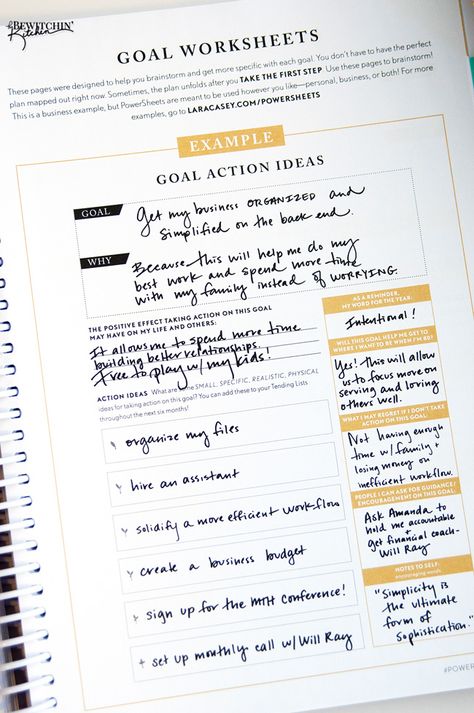 BEWITCHIN'
Kitchen
GOAL WORKSHEETS
These pages were designed to help you brainstorm and get more specific with each goal. You don't have to have the perfect
plan mapped out right now. Sometimes, the plan unfolds after you TAKE THE FIRST STEP. Use these pages to brainstorm!
This is a business example, but PowerSheets are meant to be used however you like—personal, business, or both! For more
examples, go to LARACASEY.COM/POWERSHEETS
EXAMPLE
GOAL ACTION IDEAS
GOAL
Get my business ORGANIZED and
simplified on the back end.
WHY
Because this will help me do my
best work and spend more time
with my family instead of WORRYING.
THE POSITIVE EFFECT TAKING ACTION ON THIS GOAL
MAY HAVE ON MY LIFE AND OTHERS:
It allows me to spend more time
building better relationships.
Free to play w/ my kids!
ACTION IDEAS What are some SMALL, SPECIFIC, REALISTIC, PHYSICAL
ideas for taking action on this goal? You can add these to your Tending Lists
throughout the next six months!
organize my files
hire an assistant
solidify a more efficient workflow
create a business budget
sign up for the MTH Conference!
set up monthly call w/ Will Ray
AS A REMINDER,
MY WORD FOR THE YEAR:
Intentional!
WILL THIS GOAL HELP ME GET TO
WHERE I WANT TO BE WHEN I'M 80?
Yes! this will allow
us to focus more on
serving and loving
others well.
WHAT I MAY REGRET IF I DON'T TAKE
ACTION ON THIS GOAL:
Not having enough
time w/ family +
losing money on
inefficient workflow.
PEOPLE I CAN ASK FOR GUIDANCE/
ENCOURAGEMENT ON THIS GOAL:
Ask Amanda to
hold me accountable
+
get financial coach-
Will Ray
NOTES TO SELF:
encouraging words
"Simplicity is
the ultimate
form of
sophistication."
#POWER